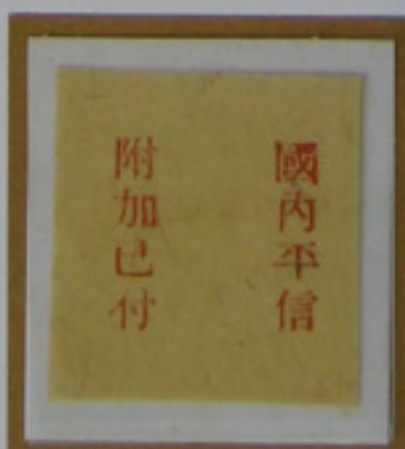 國內平信
附加已付